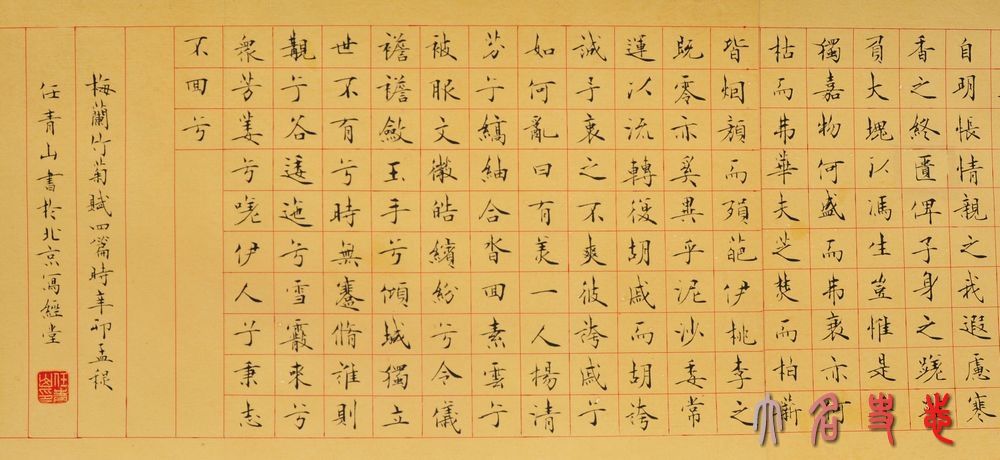 自明悵情親之我遐慮寒
香之終匱俾子身之躓
負大塊以馮生豈惟是
獨嘉物何盛而弗衰亦何
枯而弗華夫芝焚而柏
皆烱顏而殞葩伊桃李之
既零亦奚異乎泥沙委常
運以流轉復胡戚而胡誇
誠予衷之不爽彼誇戚兮
如何亂曰有美一人揚清
芬兮縞紬合沓回素雲兮
被服文徽皓繽紛兮令儀
襜襜斂玉手兮傾城獨立
世不有兮時無蹇脩誰則
覯兮谷逶迤兮雪霰來兮
衆芳萎兮嗟伊人兮秉志
不回兮
梅蘭竹菊賦四篇時辛卯孟穐
任青山書於北京寫經堂